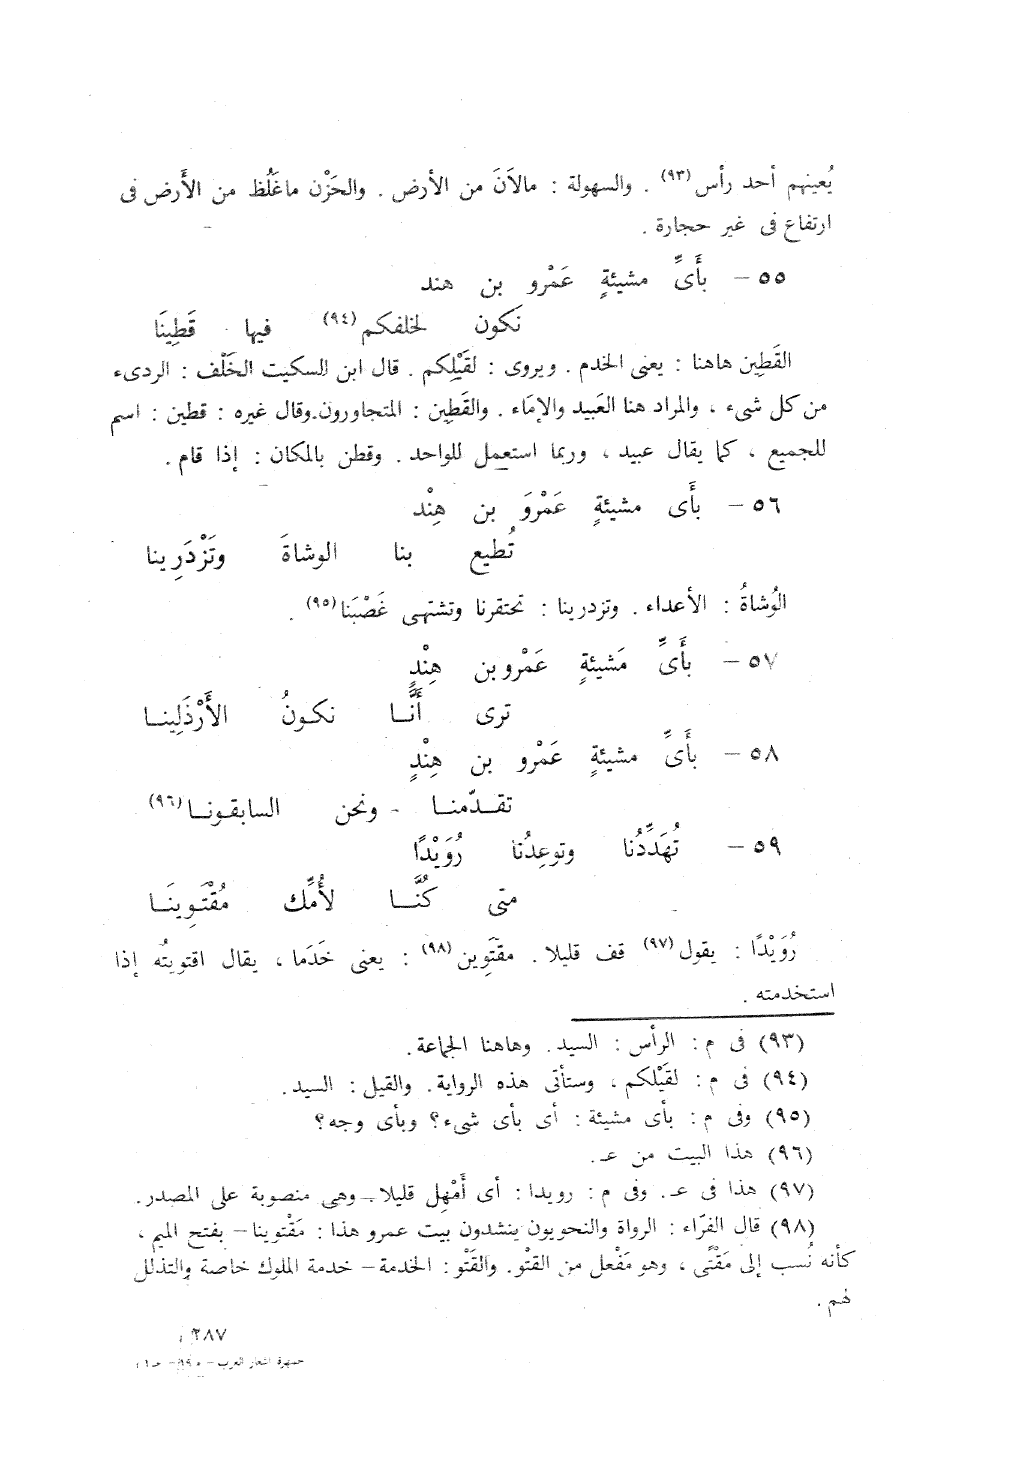 يُعينهم أحد رأس(٩٣) . والسهولة : مالاَنَ من الأرض . والحَزْن ماغَلُظ من الأَرض فى
ارتفاع فى غير حجارة .
٥٥ – بأَىِّ مشيئةٍ عَمْرو بن هند
نَكون لخلفكم(٩٤) فيها قَطِينَا
القَطِين هاهنا : يعنى الخدم . ويروى : لقَيْلِكم . قال ابن السكيت الخَلْف : الردىء
من كل شىء ، والمراد هنا العَبيد والإمَاء . والقَطِين : المتجاورون.وقال غيره : قطين : اسم
للجميع ، كما يقال عبيد ، وربما استعمل للواحد . وقطن بالمكان : إذا قام .
٥٦ – بأَى مشيئةٍ عَمْرَو بن هِنْد
تُطيع بنا الوشاةَ وتَزْدَرِينا
الوُشاةُ : الأعداء . وتزدرينا : تحتقرنا وتشتهى غَصْبَنا(٩٥) .
٥٧ – بأَىِّ مَشيئةٍ عَمْرو بن هِنْدٍ
ترى أَنَّــا نكـونُ الأَرْذَلِينـا
٥٨ – بأَىِّ مشيئةٍ عَمْرو بن هِنْدٍ
تقــدّمنــا ونحن السابقـونـا(٩٦)
٥٩ – تُهَدِّدُنا وتوعِدُنا رُوَيْدًا
متى كُنَّــا لأُمِّك مُقْتَـوِينَـا
رُوَيْدًا : يقول(٩٧) قف قليلا. مقتَوِين(٩٨) : يعنى خَدَما ، يقال اقتويتُه إذا
استخدمته .
(٩٣) فى م : الرأس : السيد. وهاهنا الجماعة.
(٩٤) فى م : لقَيْلكم ، وستأتى هذه الرواية. والقيل : السيد.
(٩٥) وفى م : بأى مشيئة : أى بأى شىء؟ وبأى وجه؟
(٩٦) هذا البيت من عـ.
(٩٧) هذا فى عـ. وفى م : رويدا : أى أَمْهِل قليلا.. وهى منصوبة على المصدر.
(٩٨) قال الفرّاء : الرواة والنحويون ينشدون بيت عمرو هذا : مَقْتوينا – بفتح الميم ،
كأنه نُسب إلى مَقْتًى ، وهو مَفْعل من القتْو. والقَتْو : الخدمة – خدمة الملوك خاصة والتذلل
لهم.
٢٨٧
جمهرة اشعار العرب – م١٩ – جـ١